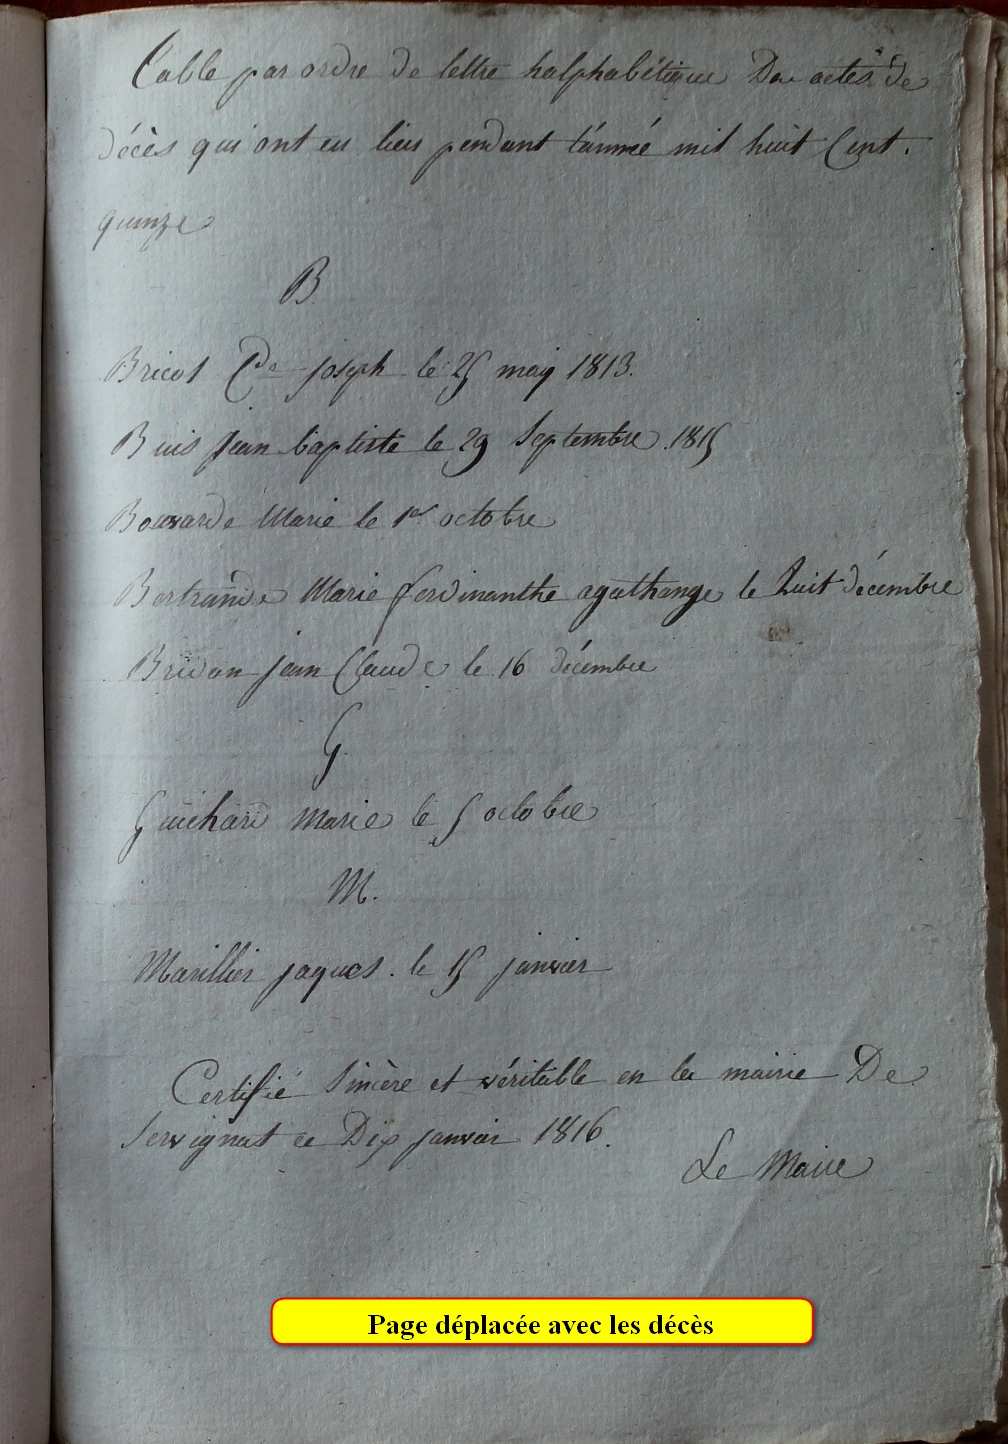 Table par ordre de lettre halphabétique Des actes de
décès qui ont eu lieu pendant l'année mil huit Cent.
quinze
B.
Bricot Cde joseph le 25 may 1813.
Buis Jean baptiste le 29 Septembre 1815
Bouvarde Marie le 1er octobre
Bertrande Marie ferdinanthe agathange le huit décembre
Bridon jean Claude le 16 décembre
G.
Guichard Marie le 5 octobre
M.
Marillier jaques. le 15 janvier
Certifié Sincère et véritable en la mairie De
Servignat ce Dix janvier 1816.
Le Maire
Page déplacée avec les décès